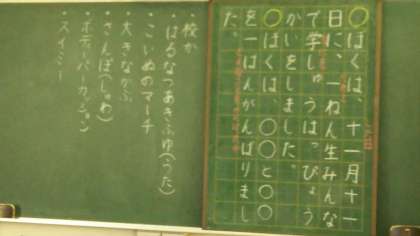 ○ぼくは、十一月十一
日に、一ねん生みんな
で学しゅうはっぴょう
かいをしました。
○ぼくは、○○と○○
を一ばんがんばりまし
た。
・校か
・はるなつあきふゆ(うた)
・こいぬのマーチ
・大きなかぶ
・さんぽ(しゅわ)
・ボディーパーカッション
・スイミー